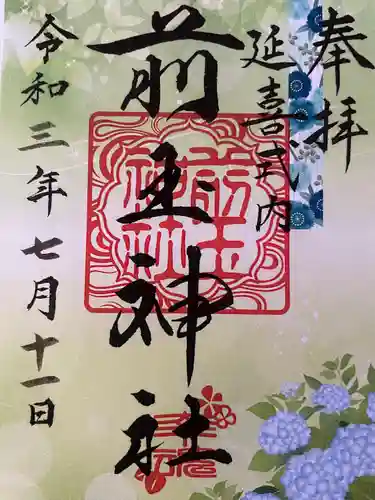 奉拝
延喜式内
前玉神社
令和三年七月十一日
前玉神社